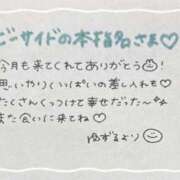 ビーサイドの本指名さま♡
今月も来てくれてありがとう
思いやりいっぱいの差し入れも♡
たくさんくっつけて幸せだった〜
また会いに来てね♡
ゆずるより